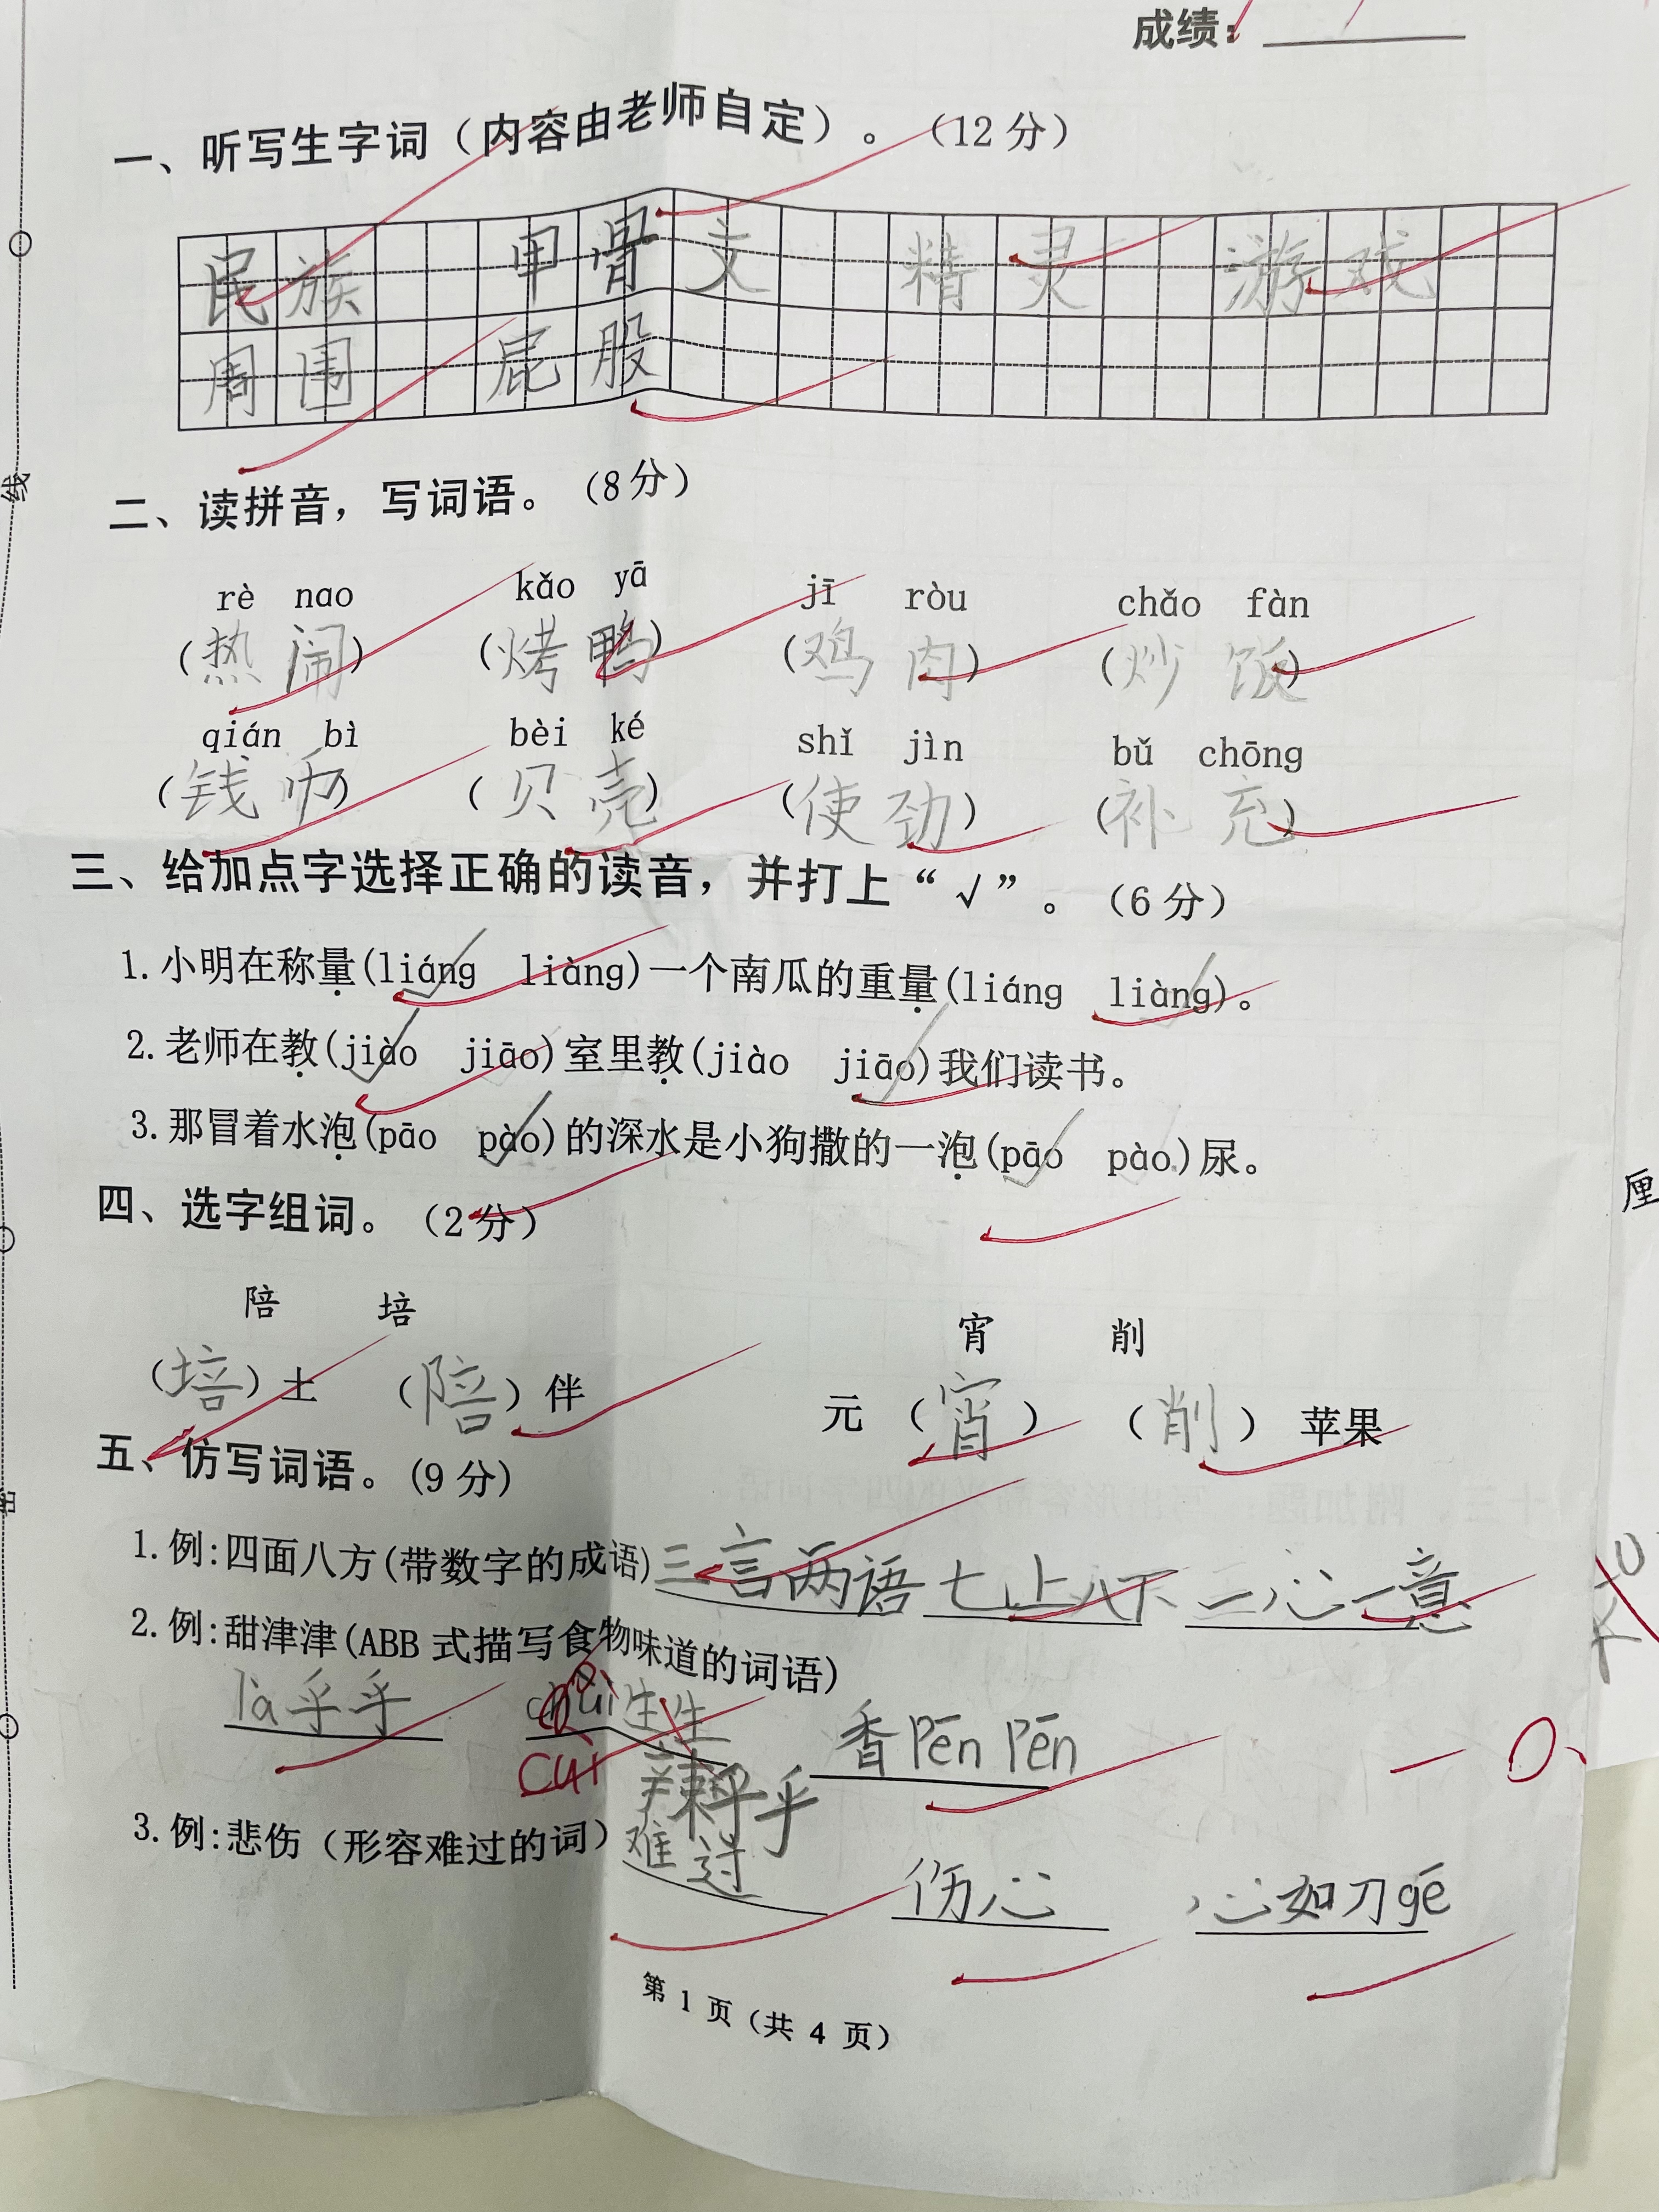 成绩:
一、听写生字词（内容由老师自定）。（12分）
民族 甲骨文 精灵 游戏
周围 屁股
二、读拼音，写词语。（8分）
rè nao kǎo yā jī ròu chǎo fàn
(热闹) (烤鸭) (鸡肉) (炒饭)
qián bì bèi ké shǐ jìn bǔ chōng
(钱币) (贝壳) (使劲) (补充)
三、给加点字选择正确的读音，并打上“√”。（6分）
1.小明在称量(liáng liàng)一个南瓜的重量(liáng liàng)。
2.老师在教(jiào jiāo)室里教(jiào jiāo)我们读书。
3.那冒着水泡(pāo pào)的深水是小狗撒的一泡(pāo pào)尿。
四、选字组词。（2分）
陪 培 宵 削
（培）土 （陪）伴 元（宵） （削）苹果
五、仿写词语。(9分)
1.例:四面八方(带数字的成语)三言两语 七上八下 一心一意
2.例:甜津津(ABB式描写食物味道的词语)
là乎乎 chuì生生 香Pēn Pēn
cuì
辣乎乎
3.例:悲伤（形容难过的词）难过 伤心 心如刀gē
第 1 页（共 4 页）
线
厘